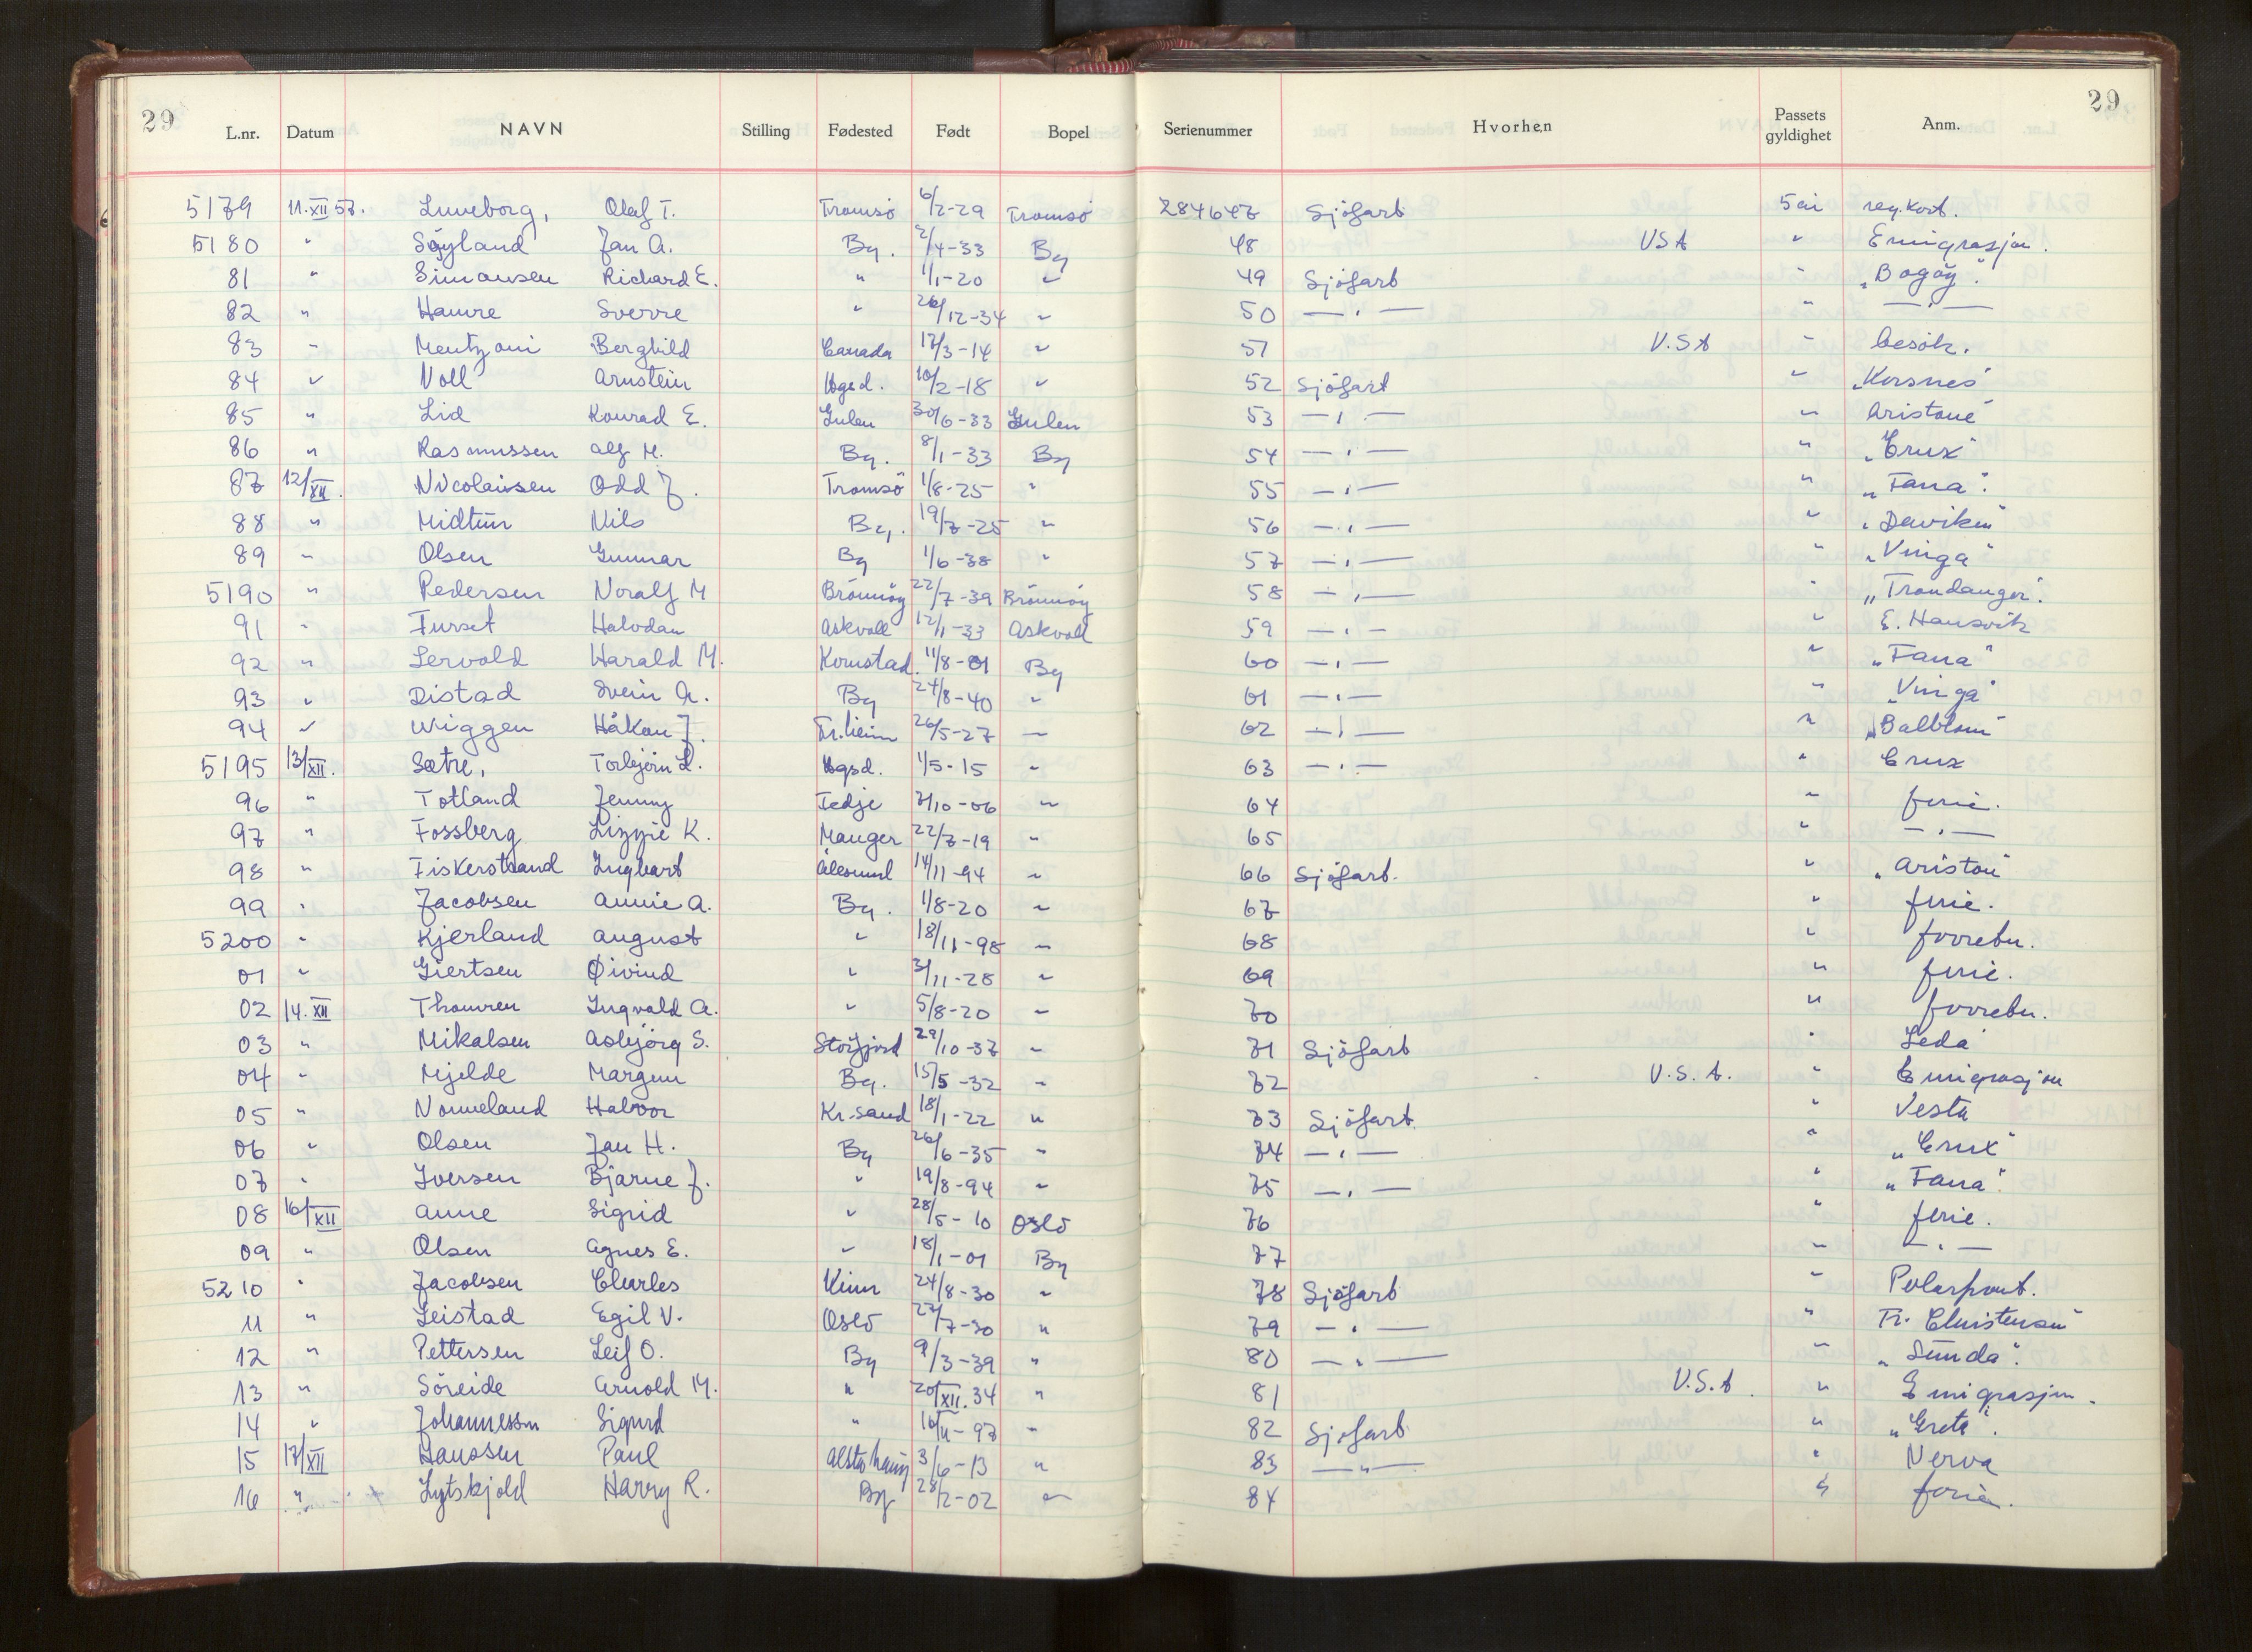 29 29
L.nr. Datum NAVN Stilling Fødested Født Bopel Serienummer Hvorhen Passets gyldighet Anm.
5179 11.XII 57. Luneborg, Olaf T. Tromsö 6/2-29 Tromsö 284647 Sjöfart 5 år reg.kort.
5180 " Söyland Jan A. Bg. 2/4-33 Bg 48 USA " Emigrasjon.
81 " Simonsen Richard E. " 1/1-20 " 49 Sjöfart " "Bogöy".
82 " Hamre Sverre " 26/12-34 " 50 —"— " —"—
83 " Mentzoni Berghild Canada 17/3-14 " 51 U.S.A " besök.
84 " Voll Arnstein Hgsd. 10/2-18 " 52 Sjöfart " "Korsnes"
85 " Lid Konrad E. Gulen 30/6-33 Gulen 53 —"— " Aristone
86 " Rasmussen Alf M. Bg. 8/1-33 Bg 54 —"— " "Crux"
87 12/XII. Nicolaisen Odd J. Tromsö 1/8-25 " 55 —"— " "Fana".
88 " Midttün Nils Bg. 19/7-25 " 56 —"— "
89 " Olsen Gunnar Bg 1/6-38 " 57 —"— " "Vinga"
5190 " Pedersen Noralf M Brönnöy 22/7-39 Brönnöy 58 —"— " "Trondanger".
91 " Furset Halvdan Askvoll 12/1-33 Askvoll 59 —"— " E. Hansvik
92 " Lervold Harald M. Kornstad 11/8-01 Bg 60 —"— " "Fana"
93 " Distad Svein A. Bg 24/8-40 " 61 —"— " "Vinga"
94 " Wiggen Håkon J. Tr.heim 26/5-27 — 62 —"— " "Balblom"
5195 13/XII. Sætre, Torbjörn L. Hgsd. 1/5-15 " 63 —"— " Crux
96 " Totland Jenny Fedje 7/10-06 " 64 " ferie.
97 " Fossberg Lizzie K. Manger 22/7-19 " 65 " —"—
98 " Fiskerstrand Ingbart Ålesund 14/11-94 " 66 Sjöfart. " "Ariston"
99 " Jacobsen Annie A. Bg. 1/8-20 " 67 " ferie.
5200 " Kjerland August " 18/11-98 " 68 " forrebn.
01 " Giertsen Øivind " 3/11-28 " 69 " ferie.
02 14.XII Ingvald A. " 5/8-20 " 70 " forrebn.
03 " Mikalsen Asbjörg S. Storfjord 29/10-37 " 71 Sjöfart " Leda
04 " Mjelde Margun Bg. 15/5-32 " 72 U.S.A. " Emigrasjon
05 " Nonneland Halvor Kr.sand 18/1-22 " 73 Sjöfart. " Vesta
06 " Olsen Jan H. Bg 26/6-35 " 74 —"— " "Crux"
07 " Iversen Bjarne J. " 19/8-94 " 75 —"— " "Fana".
08 16/XII Anne Sigrid " 28/5-10 Oslo 76 " ferie.
09 " Olsen Agnes E. " 18/1-01 Bg 77 " —"—
5210 " Jacobsen Charles Kinn 24/8-30 " 78 Sjöfart " Polarfront.
11 " Leistad Egil V. Oslo 27/7-30 " 79 —"— " Fr. Christensen
12 " Pettersen Leif O. Bg 9/3-39 " 80 —"— " "Sunda".
13 " Söreide Arnold M. " 20/XII.34 " 81 U.S.A. " Emigrasjon.
14 " Johannessen Sigurd " 16/11-97 " 82 Sjöfart " "Grete".
15 17/XII Hanssen Paul Alstahaug 3/6-13 " 83 —"— " Nerva
16 " Lytskjold Harry R. Bg 28/2-02 " 84 " ferie.